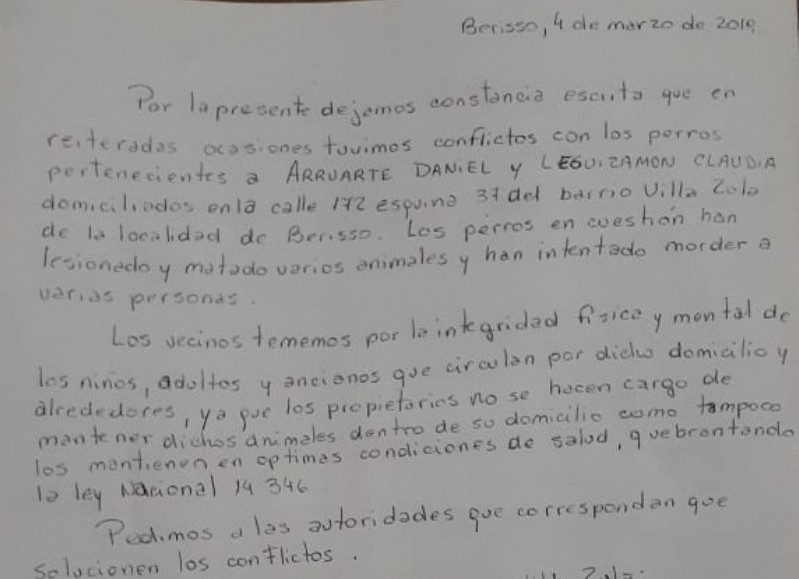 Berisso, 4 de marzo de 2019.
Por la presente dejamos constancia escrita que en
reiteradas ocasiones tuvimos conflictos con los perros
pertenecientes a ARRUARTE DANIEL y LEGUIZAMON CLAUDIA
domiciliados en la calle 172 esquina 37 del barrio Villa Zula
de la localidad de Berisso. Los perros en cuestión han
lesionado y matado varios animales y han intentado morder a
varias personas.
Los vecinos tememos por la integridad física y mental de
los niños, adultos y ancianos que circulan por dicho domicilio y
alrededores, ya que los propietarios no se hacen cargo de
mantener dichos animales dentro de su domicilio como tampoco
los mantienen en optimas condiciones de salud, quebrantando
la ley Nacional 14 346
Pedimos a las autoridades que correspondan que
solucionen los conflictos.